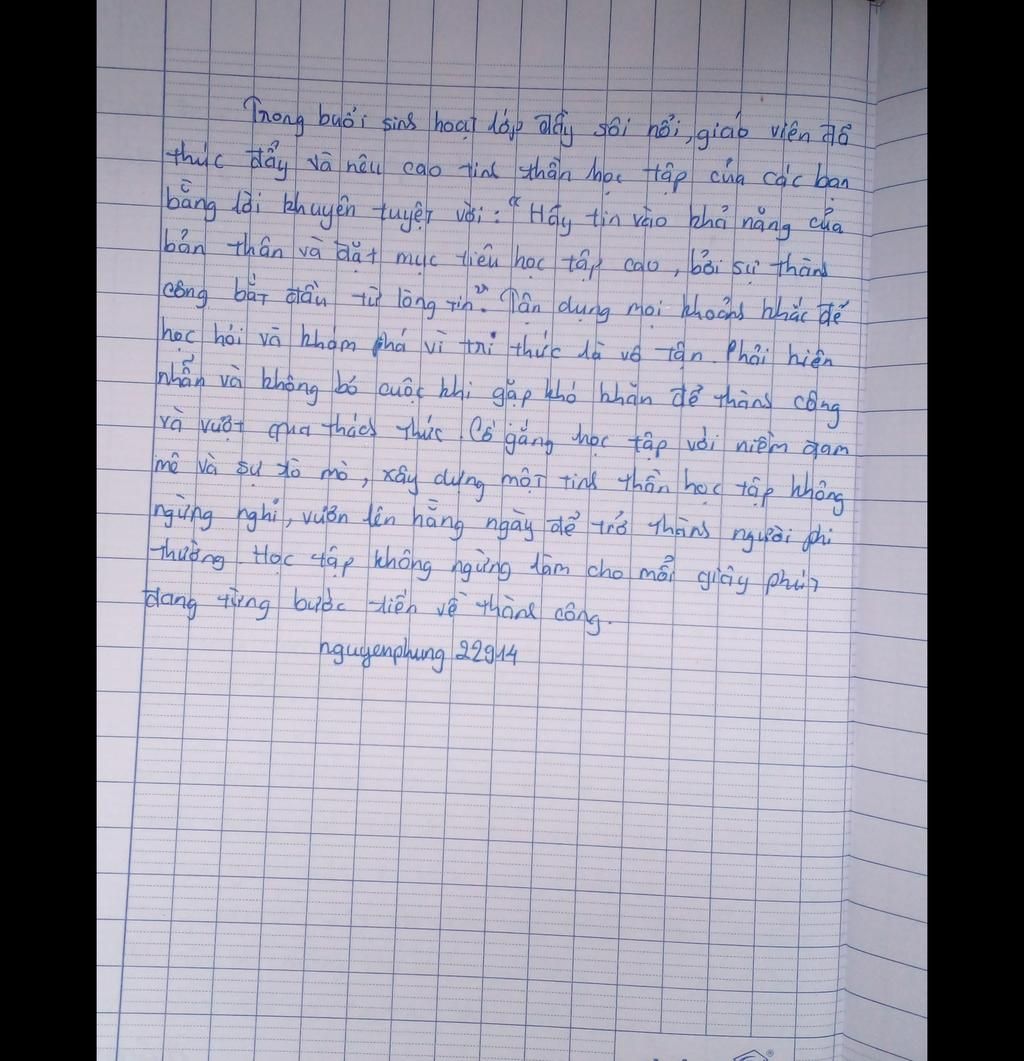 Trong buổi sinh hoạt lớp đầy sôi nổi, giáo viên đã
thúc đẩy và nêu cao tinh thần học tập của các bạn
bằng lời khuyên tuyệt vời: "Hãy tin vào khả năng của
bản thân và đặt mục tiêu học tập cao, bởi sự thành
công bắt đầu từ lòng tin". Tận dụng mọi khoảnh khắc để
học hỏi và khám phá vì tri thức là vô tận. Phải kiên
nhẫn và không bỏ cuộc khi gặp khó khăn để thành công
và vượt qua thách thức. Cố gắng học tập với niềm đam
mê và sự tò mò, xây dựng một tinh thần học tập không
ngừng nghỉ, vươn lên hằng ngày để trở thành người phi
thường. Học tập không ngừng làm cho mỗi giây phút
đang từng bước tiến về thành công.
nguyenphung 22914